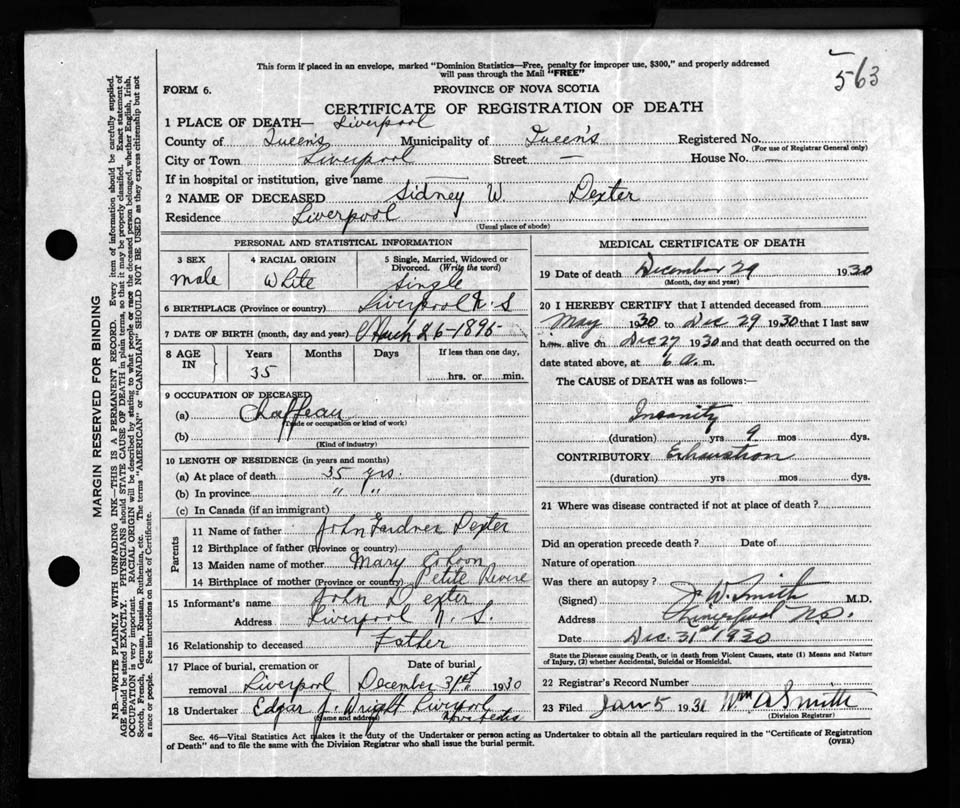 563
This form if placed in an envelope, marked "Dominion Statistics—Free, penalty for improper use, $300," and properly addressed
will pass through the Mail "FREE"
FORM 6. PROVINCE OF NOVA SCOTIA
CERTIFICATE OF REGISTRATION OF DEATH
1 PLACE OF DEATH— Liverpool
County of Queen's Municipality of Queen's Registered No.
(For use of Registrar General only)
City or Town Liverpool Street — House No. —
If in hospital or institution, give name —
2 NAME OF DECEASED Sidney W. Dexter
Residence Liverpool
(Usual place of abode)
PERSONAL AND STATISTICAL INFORMATION
3 SEX 4 RACIAL ORIGIN 5 Single, Married, Widowed or
Divorced. (Write the word)
male White Single
6 BIRTHPLACE (Province or country) Liverpool N. S
7 DATE OF BIRTH (month, day and year) 26-1895-
8 AGE IN Years Months Days If less than one day,
35 hrs. or min.
9 OCCUPATION OF DECEASED
(a) Chaffeau
(Trade or occupation or kind of work)
(b)
(Kind of industry)
10 LENGTH OF RESIDENCE (in years and months)
(a) At place of death 35 yrs.
(b) In province " "
(c) In Canada (if an immigrant)
Parents
11 Name of father John Gardner Dexter
12 Birthplace of father (Province or country)
13 Maiden name of mother Mary Cohoon
14 Birthplace of mother (Province or country) Petite Rivere
15 Informant's name John Dexter
Address Liverpool N. S.
16 Relationship to deceased Father
17 Place of burial, cremation or Date of burial
removal Liverpool December 31st 1930
18 Undertaker Edgar J. Wright Liverpool
(Name and address) Nova Scotia
MEDICAL CERTIFICATE OF DEATH
19 Date of death December 29 1930
(Month, day and year)
20 I HEREBY CERTIFY that I attended deceased from
May 1930 to Dec 29 1930 that I last saw
him alive on Dec 27 1930 and that death occurred on the
date stated above, at 6 a. m.
The CAUSE of DEATH was as follows:—
Insanity
(duration) yrs 9 mos dys.
CONTRIBUTORY Exhaustion
(duration) yrs mos dys.
21 Where was disease contracted if not at place of death?
Did an operation precede death? Date of
Nature of operation
Was there an autopsy?
(Signed) J W. Smith M.D.
Address Liverpool N.S.
Date Dec. 31st 1930
State the Disease causing Death, or in death from Violent Causes, state (1) Means and Nature
of Injury, (2) whether Accidental, Suicidal or Homicidal.
22 Registrar's Record Number
23 Filed Jan 5 1931 Wm A Smith
(Division Registrar)
Sec. 46—Vital Statistics Act makes it the duty of the Undertaker or person acting as Undertaker to obtain all the particulars required in the "Certificate of Registration
of Death" and to file the same with the Division Registrar who shall issue the burial permit. (OVER)
MARGIN RESERVED FOR BINDING
N.B.—WRITE PLAINLY WITH UNFADING INK—THIS IS A PERMANENT RECORD. Every item of information should be carefully supplied.
AGE should be stated EXACTLY. PHYSICIANS should STATE CAUSE OF DEATH in plain terms, so that it may be properly classified. Exact statement of
OCCUPATION is very important. RACIAL ORIGIN will be described by stating to what people or race the deceased person belonged, whether English, Irish,
Scotch, French, German, Russian, Ruthenian, etc. The terms "AMERICAN" or "CANADIAN" SHOULD NOT BE USED as they express citizenship but not
a race or people. See instructions on back of Certificate.